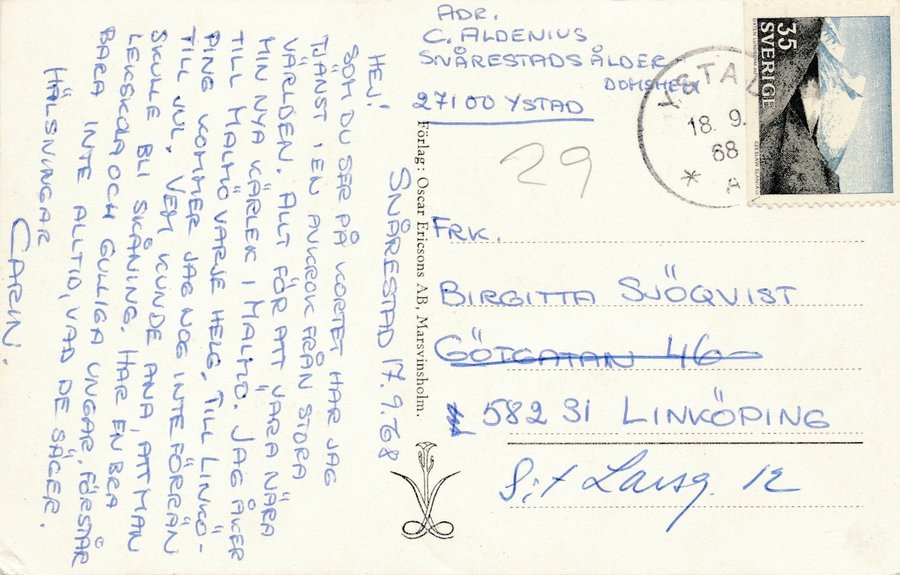 SNÅRESTAD 17.9.68
HEJ!
SOM DU SER PÅ KORTET HAR JAG
TJÄNST I EN AVKROK FRÅN STORA
VÄRLDEN. ALLT FÖR ATT VARA NÄRA
MIN NYA KÄRLEK I MALMÖ. JAG ÅKER
TILL MALMÖ VARJE HELG, TILL LINKÖ-
PING KOMMER JAG NOG INTE FÖRRÄN
TILL JUL. VEM KUNDE ANA, ATT MAN
SKULLE BLI SKÅNING. HAR EN BRA
LEKSKOLA OCH GULLIGA UNGAR, FÖRSTÅR
BARA INTE ALLTID, VAD DE SÄGER.
HÄLSNINGAR
CARIN.
Förlag: Oscar Ericsons AB, Marsvinsholm.
ADR.
C. ALDENIUS
SNÅRESTADS ÅLDER
DOMSHEM
27100 YSTAD
29
YSTAD
18. 9.
68
* A
35
SVERIGE
FRK.
BIRGITTA SJÖQVIST
GÖTGATAN 46
582 31 LINKÖPING
S:t Larsg. 12